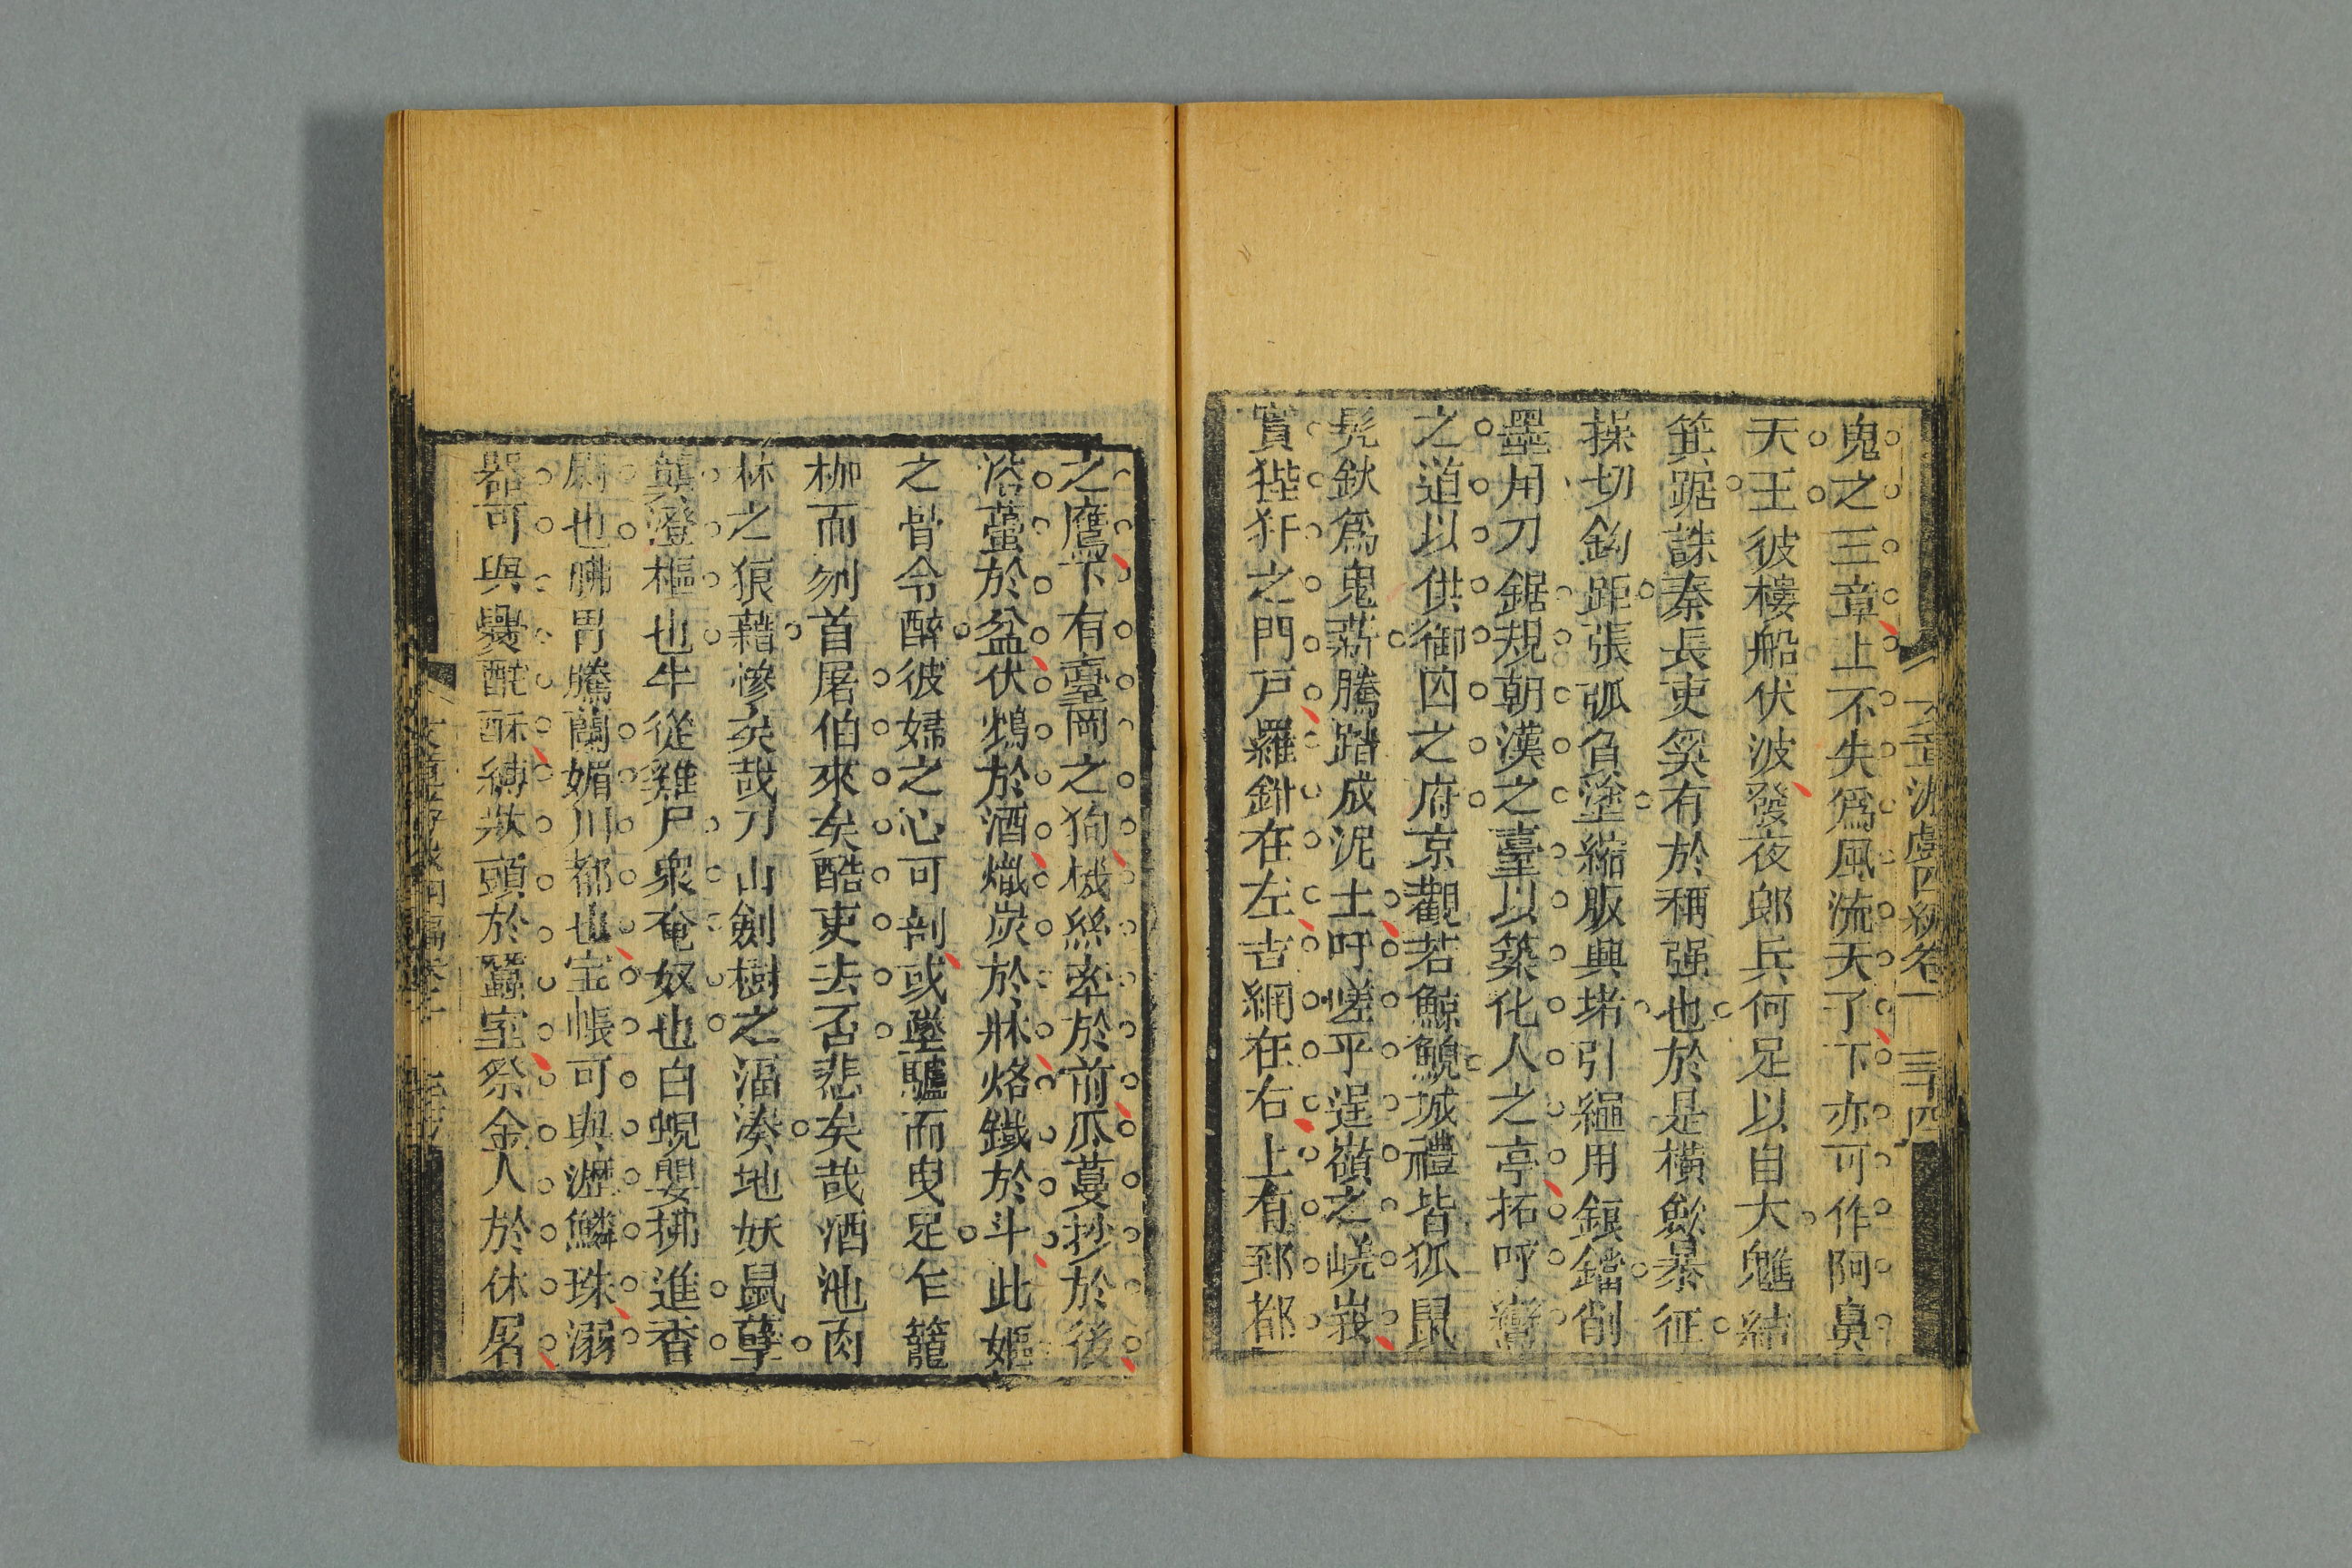 文章游戲四編卷一 三十四
鬼之三章上不失爲風流天了下亦可作阿鼻
天王彼樓船伏波發夜郎兵何足以自大魋結
箕踞誅秦長吏矣有於稱强也於是橫歛暴征
操切鈎距張弧負塗縮版興堵引繩用鋃鐺削
墨用刀鋸規朝漢之臺以築化人之亭拓呼鸞
之道以供御囚之府京觀若鯨鯢城禮皆狐鼠
髡鈦爲鬼薪騰踏成泥土吁嗟乎逞嶺之嶢峩
實狴犴之門戸羅鉗在左吉網在右上有郅都
之鷹下有臺岡之狗械絲牽於前瓜蔓抄於後
浴蠆於盆伏鴆於酒熾炭於牀烙鐵於斗此嫗
之骨令醉彼婦之心可剖或墜驢而曳足乍籠
栁而刎首屠伯來矣酷吏去否悲矣哉酒池肉
林之狼藉慘矣哉刀山劍樹之湢湊地妖鼠孽
龔澄樞也牛從雞尸衆奄奴也白蜺嬰拂進香
尉也 胃騰蘭媚川都也宝帳可與瀝鱗珠溺
器可與爨酕酥縛 頭於蠶室祭金人於休屠